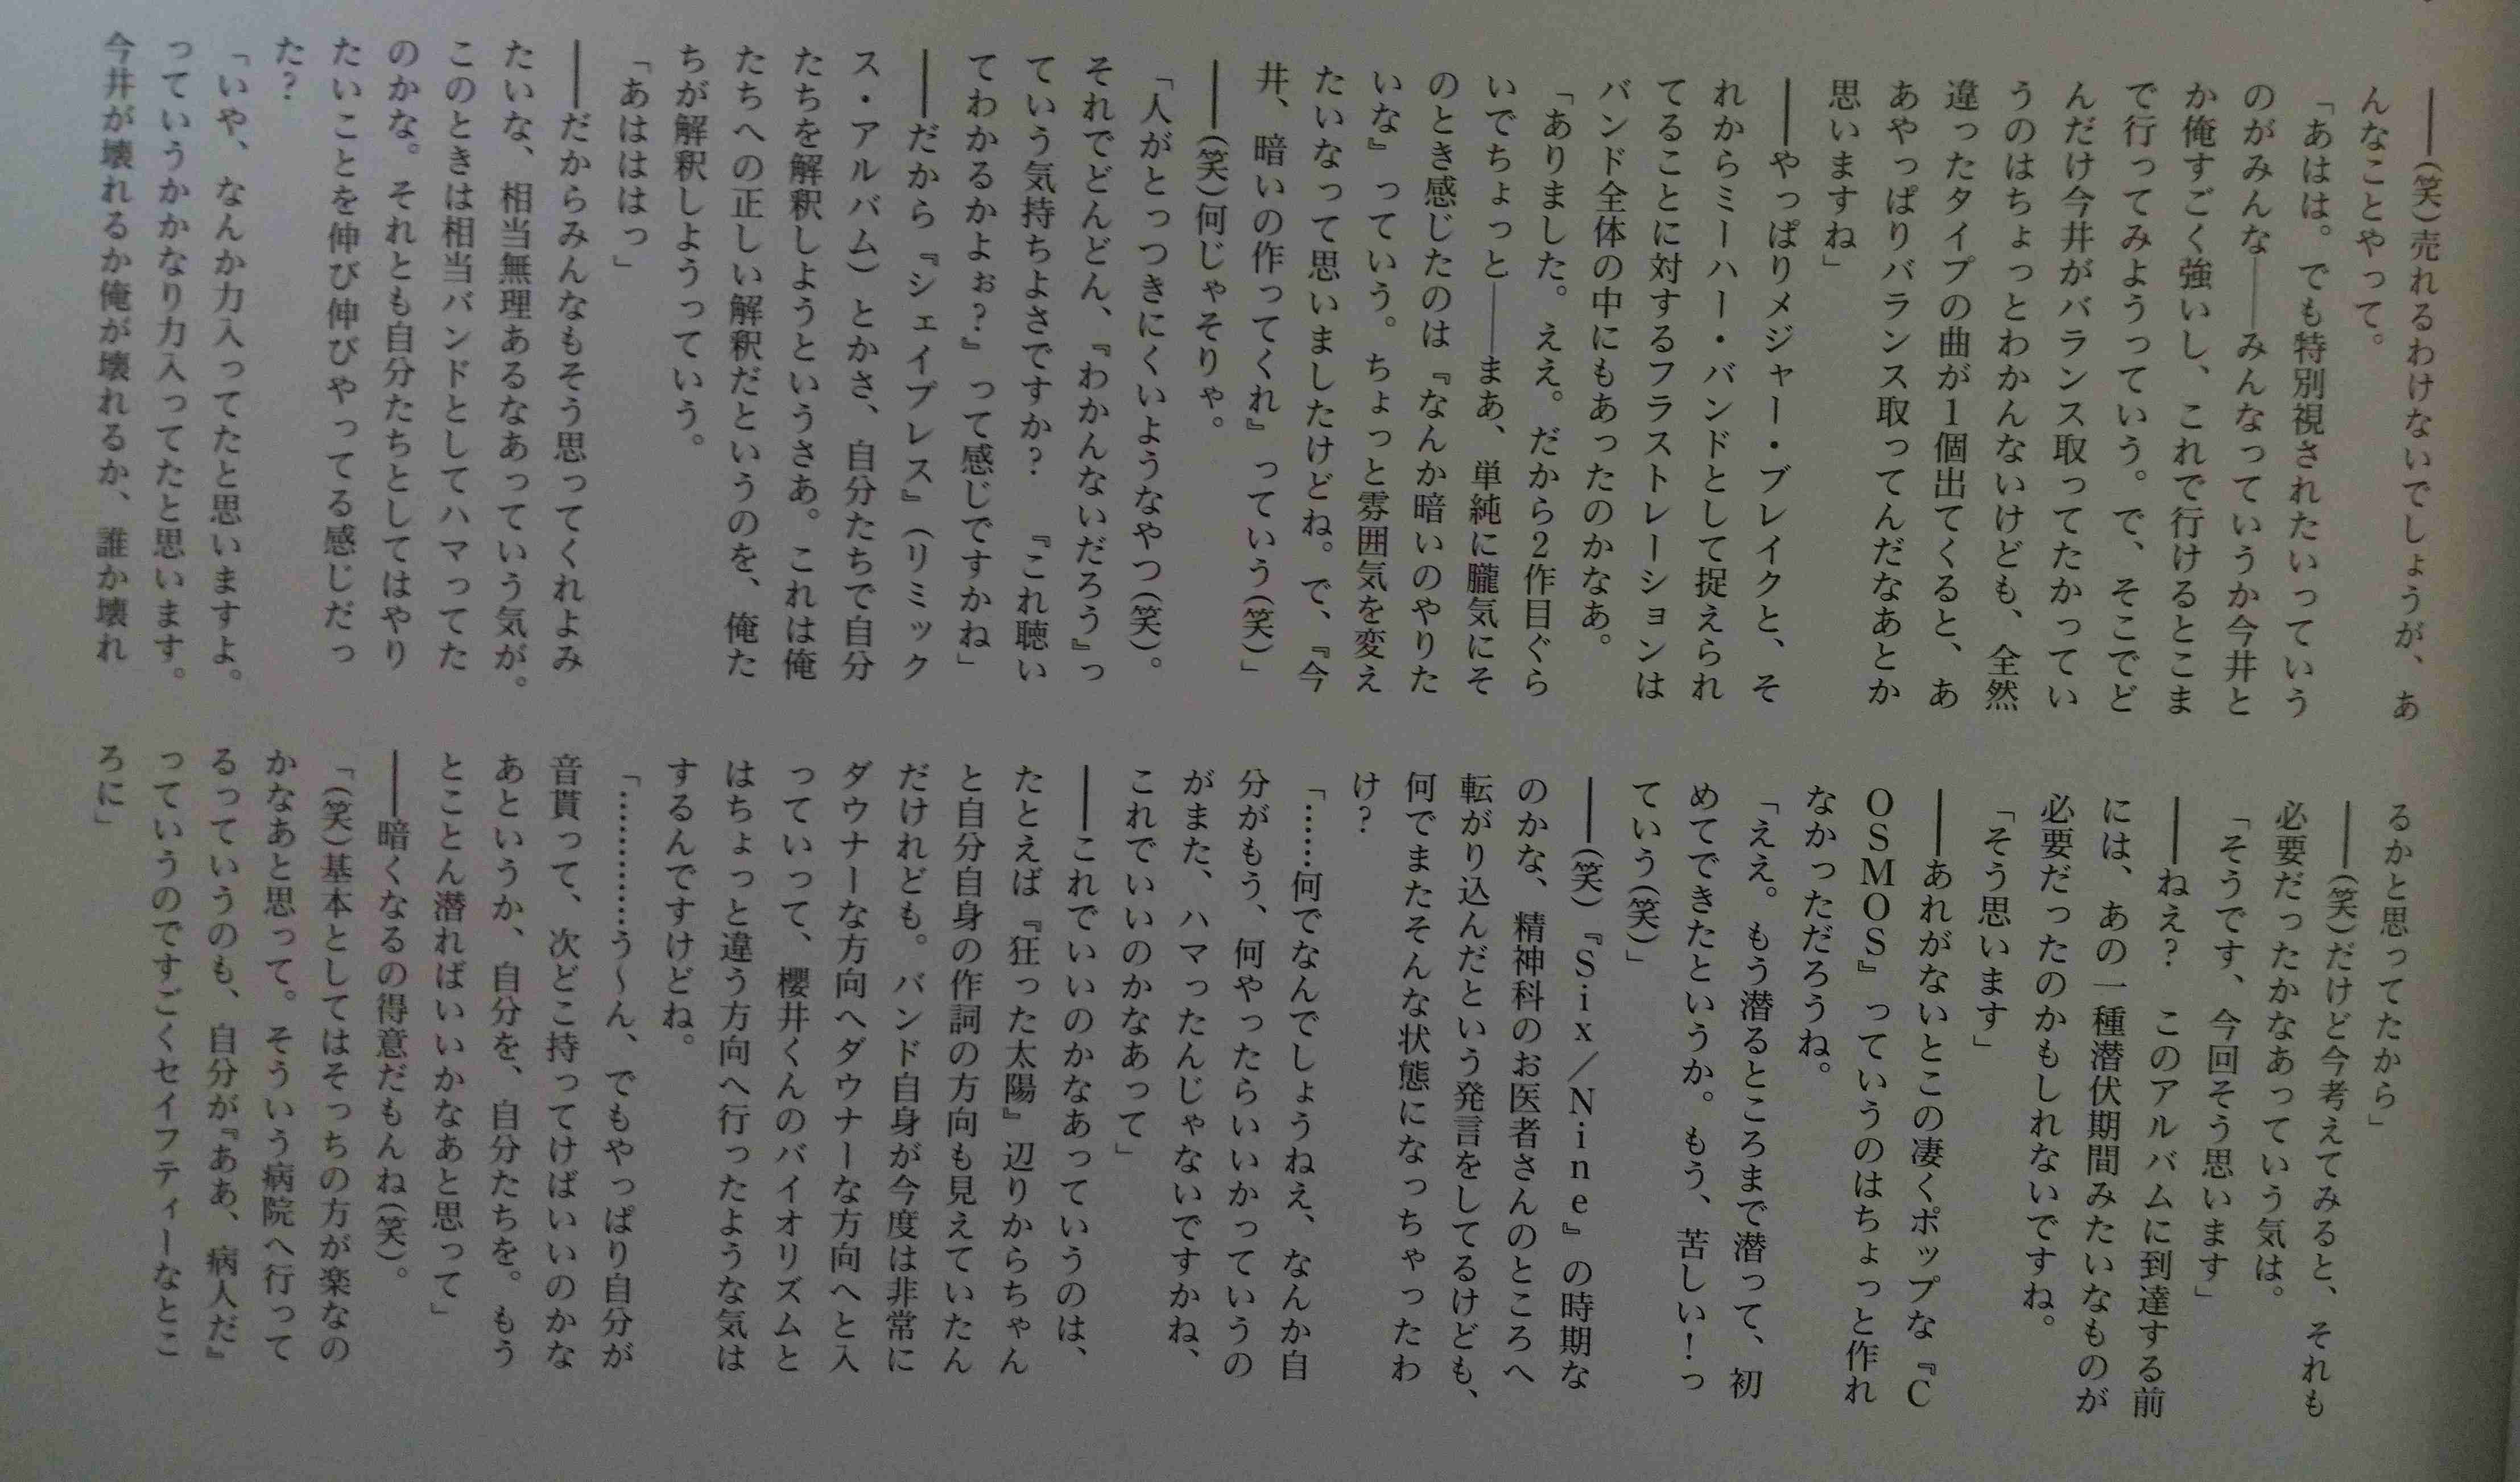 ――(笑)売れるわけないでしょうが、あ
んなことやって。
「あはは。でも特別視されたいっていう
のがみんな――みんなっていうか今井と
か俺すごく強いし、これで行けるとこま
で行ってみようっていう。で、そこでど
んだけ今井がバランス取ってたかってい
うのはちょっとわかんないけども、全然
違ったタイプの曲が1個出てくると、あ
あやっぱりバランス取ってんだなあとか
思いますね」
――やっぱりメジャー・ブレイクと、そ
れからミーハー・バンドとして捉えられ
てることに対するフラストレーションは
バンド全体の中にもあったのかなあ。
「ありました。ええ。だから2作目ぐら
いでちょっと――まあ、単純に朧気にそ
のとき感じたのは『なんか暗いのやりた
いな』っていう。ちょっと雰囲気を変え
たいなって思いましたけどね。で、『今
井、暗いの作ってくれ』っていう(笑)」
――(笑)何じゃそりゃ。
「人がとっつきにくいようなやつ(笑)。
それでどんどん、『わかんないだろう』っ
ていう気持ちよさですか？　『これ聴い
てわかるかよぉ？』って感じですかね」
――だから『シェイプレス』(リミック
ス・アルバム)とかさ、自分たちで自分
たちを解釈しようというさあ。これは俺
たちへの正しい解釈だというのを、俺た
ちが解釈しようっていう。
「あはははっ」
――だからみんなもそう思ってくれよみ
たいな、相当無理あるなあっていう気が。
このときは相当バンドとしてハマってた
のかな。それとも自分たちとしてはやり
たいことを伸び伸びやってる感じだっ
た？
「いや、なんか力入ってたと思いますよ。
っていうかかなり力入ってたと思います。
今井が壊れるか俺が壊れるか、誰か壊れ
るかと思ってたから」
――(笑)だけど今考えてみると、それも
必要だったかなあっていう気は。
「そうです、今回そう思います」
――ねえ？　このアルバムに到達する前
には、あの一種潜伏期間みたいなものが
必要だったのかもしれないですね。
「そう思います」
――あれがないとこの凄くポップな『C
OSMOS』っていうのはちょっと作れ
なかっただろうね。
「ええ。もう潜るところまで潜って、初
めてできたというか。もう、苦しい！っ
ていう(笑)」
――(笑)『Six／Nine』の時期な
のかな、精神科のお医者さんのところへ
転がり込んだという発言をしてるけども、
何でまたそんな状態になっちゃったわ
け？
「……何でなんでしょうねえ、なんか自
分がもう、何やったらいいかっていうの
がまた、ハマったんじゃないですかね、
これでいいのかなあって」
――これでいいのかなあっていうのは、
たとえば『狂った太陽』辺りからちゃん
と自分自身の作詞の方向も見えていたん
だけれども。バンド自身が今度は非常に
ダウナーな方向へダウナーな方向へと入
っていって、櫻井くんのバイオリズムと
はちょっと違う方向へ行ったような気は
するんですけどね。
「…………う～ん、でもやっぱり自分が
音貰って、次どこ持ってけばいいのかな
あというか、自分を、自分たちを。もう
とことん潜ればいいかなあと思って」
――暗くなるの得意だもんね(笑)。
「(笑)基本としてはそっちの方が楽なの
かなあと思って。そういう病院へ行って
るっていうのも、自分が『ああ、病人だ』
っていうのですごくセイフティーなとこ
ろに」